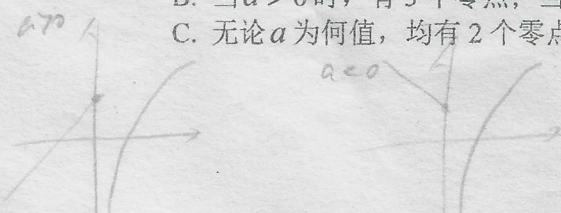 C. 无论a为何值，均有2个零点
a>0
a<0